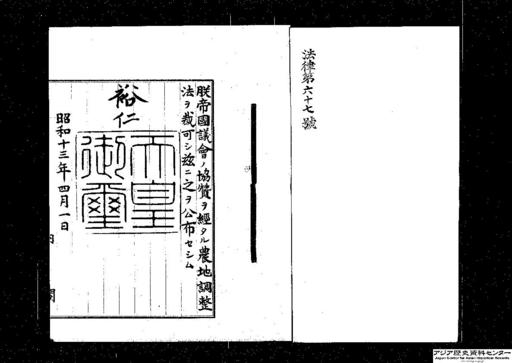 法律第六十七號
朕帝國議會ノ協贊ヲ經タル農地調整
法ヲ裁可シ茲ニ之ヲ公布セシム
裕仁
天皇
御璽
昭和十三年四月一日
内閣
アジア歴史資料センター
Japan Center for Asian Historical Records